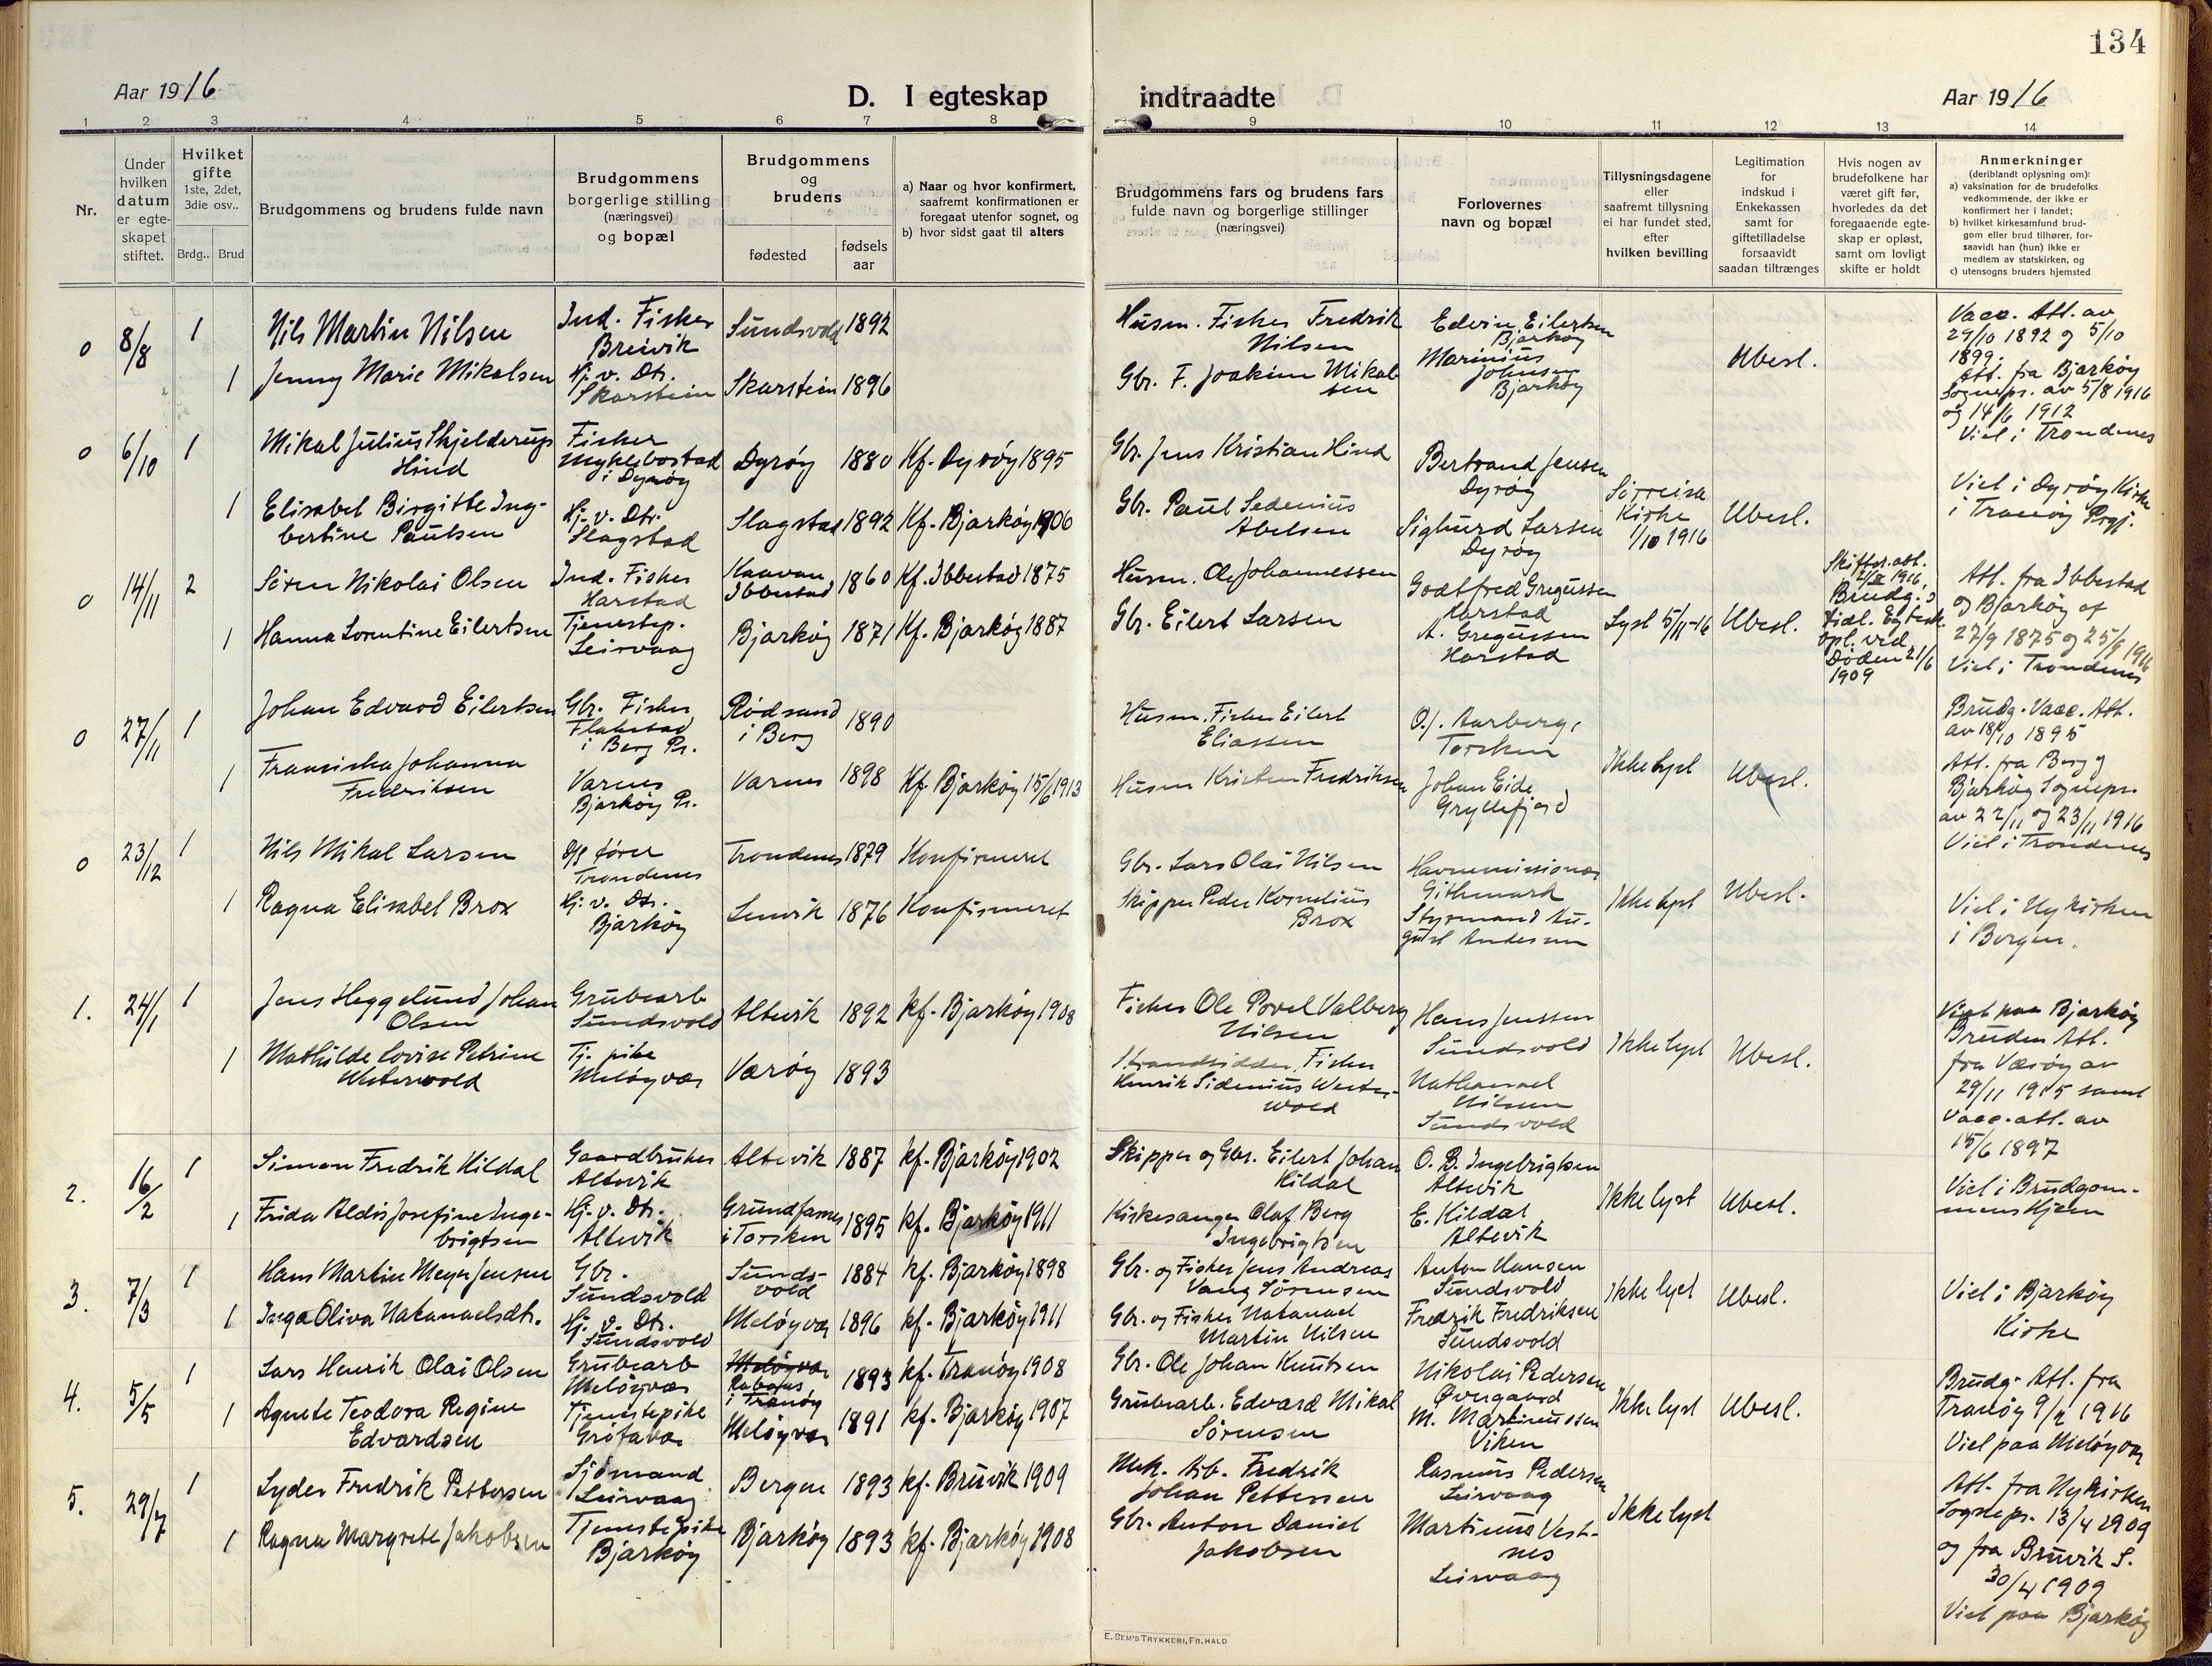 134
Aar 1916
D. I egteskap indtraadte
Aar 1916
1 2 3 4 5 6 7 8 9 10 11 12 13 14
Nr.
Under
hvilken
datum
er egte-
skapet
stiftet.
Hvilket
gifte
1ste, 2det,
3die osv..
Brdg.. Brud
Brudgommens og brudens fulde navn
Brudgommens
borgerlige stilling
(næringsvei)
og bopæl
Brudgommens
og
brudens
fødested
fødsels
aar
a) Naar og hvor konfirmert,
saafremt konfirmationen er
foregaat utenfor sognet, og
b) hvor sidst gaat til alters
Brudgommens fars og brudens fars
fulde navn og borgerlige stillinger
(næringsvei)
Forlovernes
navn og bopæl
Tillysningsdagene
eller
saafremt tillysning
ei har fundet sted,
efter
hvilken bevilling
Legitimation
for
indskud i
Enkekassen
samt for
giftetilladelse
forsaavidt
saadan tiltrænges
Hvis nogen av
brudefolkene har
været gift før,
hvorledes da det
foregaaende egte-
skap er opløst,
samt om lovligt
skifte er holdt
Anmerkninger
(deriblandt oplysning om):
a) vaksination for de brudefolks
vedkommende, der ikke er
konfirmert her i landet;
b) hvilket kirkesamfund brud-
gom eller brud tilhører, for-
saavidt han (hun) ikke er
medlem av statskirken, og
c) utensogns bruders hjemsted
0 8/8 1
Nils Martin Nilsen
Ind. Fisker
Breivik
Sundsvold 1892
Husm. Fisker Fredrik
Nilsen
Edvin Eilertsen
Bjarkøy
Ubesl.
Vacc. Att. av
29/10 1892 og 5/10
1899.
Att. fra Bjarkøy
Sognepr. av 5/8 1916
og 14/6 1912
Viel i Trondenes
1 Jenny Marie Mikalsen
Hj. v. Dtr.
Skarstein
Skarstein 1896
Gbr. F. Joakim Mikal
sen
Marinius
Johnsen
Bjarkøy
0 6/10 1
Mikal Julius Skjelderup
Hind
Fisker
Myklebostad
i Dyrøy
Dyrøy 1880 Kf. Dyrøy 1895
Gbr. Jens Kristian Hind
Bertrand Jensen
Dyrøy
Sørreisa
Kirke
1/10 1916
Ubesl.
Viel i Dyrøy Kirke
i Tranøy Prgj.
1 Elisabet Birgitte Ing-
bertine Paulsen
Hj. v. Dtr.
Slagstad
Slagstad 1892 Kf. Bjarkøy 1906
Gbr. Paul Sedenius
Abelsen
Sighurd Larsen
Dyrøy
0 14/11 2
Søren Nikolai Olsen
Ind. Fisker
Harstad
Kaavan
Ibbestad
1860 Kf. Ibbestad 1875
Husm. Ole Johannessen
Godtfred Gregussen
Harstad
Lyst 5/11-16 Ubesl.
Skifter.att.
1916
Brudg.s
tidl. Egtesk.
opl. ved
Døden 21/6
1909
Att. fra Ibbestad
og Bjarkøy af
27/9 1875 og 25/9 1916
Viel i Trondenes
1 Hanna Lorentine Eilertsen
Tjenestep.
Leirvaag
Bjarkøy 1871 Kf. Bjarkøy 1887
Gbr. Eilert Larsen
A. Gregussen
Harstad
0 27/11 1
Johan Edvard Eilertsen
Gbr. Fisker
Flakstad
i Berg Pr.
Rødsand
i Berg
1890
Husm. Fisker Eilert
Eliassen
O. J. Aarberg,
Torsken
Ikke lyst Ubesl.
Brudg. Vacc. Att.
av 18/10 1895
Att. fra Berg og
Bjarkøy Sognepr.
av 22/11 og 23/11 1916
Viel i Trondenes
1 Fransiska Johanna
Fredriksen
Varnes
Bjarkøy Pr.
Varnes 1898 Kf. Bjarkøy 15/6 1913
Husm Kristen Fredriksen
Johan Eide
Gryllefjord
0 23/12 1
Nils Mikal Larsen
D/S fører
Trondenes
Trondenes 1879 Konfirmeret
Gbr. Lars Olai Nilsen
Havnemissionær
Githmark
Ikke lyst Ubesl.
Viel i Nykirken
i Bergen.
1 Ragna Elisabet Brox
Hj. v. Dtr.
Bjarkøy
Lenvik 1876 Konfirmeret
Skipper Peder Kornelius
Brox
Styrmand Au-
gust Andersen
1. 24/1 1
Jens Heggelund Johan
Olsen
Grubearb
Sundsvold
Altevik 1892 kf. Bjarkøy 1908
Fisker Ole Povel Valberg
Nilsen
Hans Jenssen
Sundsvold
Ikke lyst Ubesl.
Viet paa Bjarkøy
Bruden Att.
fra Værøy av
29/11 1915 samt
Vacc. att. av
15/6 1897
1 Mathilde Lovise Petrine
Westerwold
Tj. pike
Meløyvær
Værøy 1893
Strandsidder, Fisker
Henrik Sidenius Wester-
wold
Nathanael
Nilsen
Sundsvold
2. 16/2 1
Simon Fredrik Kildal
Gaardbruker
Altevik
Altevik 1887 kf. Bjarkøy 1902
Skipper og Gbr. Eilert Johan
Kildal
O. B. Ingebrigtsen
Altevik
Ikke lyst Ubesl.
Viel i Brudgom-
mens Hjem
1 Frida Aldis Josefine Inge-
brigtsen
Hj. v. Dtr.
Altevik
Grundfarnes
i Torsken
1895 kf. Bjarkøy 1911
Kirkesanger Olaf Berg
Ingebrigtsen
E. Kildal
Altevik
3. 7/3 1
Hans Martin Meyer Jensen
Gbr.
Sundsvold
Sunds-
vold
1884 kf. Bjarkøy 1898
Gbr. og Fisker Jens Andreas
Vang Sørensen
Anton Hansen
Sundsvold
Ikke lyst Ubesl.
Viel i Bjarkøy
Kirke
1 Inga Oliva Natanaelsdtr.
Hj. v. Dtr.
Sundsvold
Meløyvær 1896 kf. Bjarkøy 1911
Gbr. og Fisker Natanael
Martin Nilsen
Fredrik Fredriksen
Sundsvold
4. 5/5 1
Lars Henrik Olai Olsen
Grubearb
Meløyvær
Meløyvær
i Tranøy
1893 kf. Tranøy 1908
Gbr. Ole Johan Knutsen
Nikolai Pedersen
Øvergaard
Ikke lyst Ubesl.
Brudg. Att. fra
Tranøy 9/2 1916
Viel paa Meløyvær
1 Agnete Teodora Regine
Edvardsen
Tjenestepike
Grøtavær
Meløyvær 1891 kf. Bjarkøy 1907
Grubearb. Edvard Mikal
Sørensen
M. Martinussen
Viken
5. 29/7 1
Lyder Fredrik Pettersen
Sjømand
Leirvaag
Bergen 1893 kf. Bruvik 1909
Mek. Arb. Fredrik
Johan Pettersen
Rasmus Pedersen
Leirvaag
Ikke lyst
Att. fra Nykirken
Sognepr. 13/4 1909
og fra Bruvik S.
30/4 1909
Viel paa Bjarkøy
1 Ragna Margrete Jakobsen
Tjenestepike
Bjarkøy
Bjarkøy 1893 kf. Bjarkøy 1908
Gbr. Anton Daniel
Jakobsen
Martinus Vest-
nes
Leirvaag
E. SEM'S TRYKKERI, FR.HALD